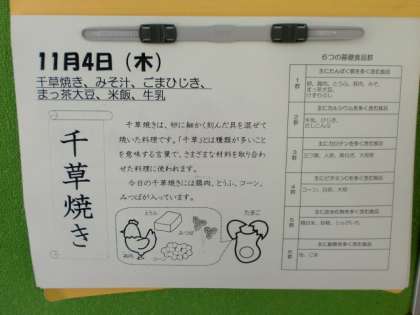 11月4日（木）
千草焼き、みそ汁、ごまひじき、
まっ茶大豆、米飯、牛乳
千草焼き
千草焼きは、卵に細かく刻んだ具を混ぜて
焼いた料理です。「千草」とは種類が多いこと
を意味する言葉で、さまざまな材料を取り合わせ
た料理に使われます。
今日の千草焼きには鶏肉、とうふ、コーン、
みつばが入っています。
とうふ
みつば
たまご
鶏肉
コーン
6つの基礎食品群
1群
主にたんぱく質を多く含む食品
卵、鶏肉、とうふ、豚肉、みそ、
まっ茶大豆、
2群
主にカルシウムを多く含む食品
牛乳、ひじき、
3群
主にカロテンを多く含む食品
4群
主にビタミンCを多く含む食品
5群
主に炭水化物を多く含む食品
6群
主に脂質を多く含む食品
油、ごま